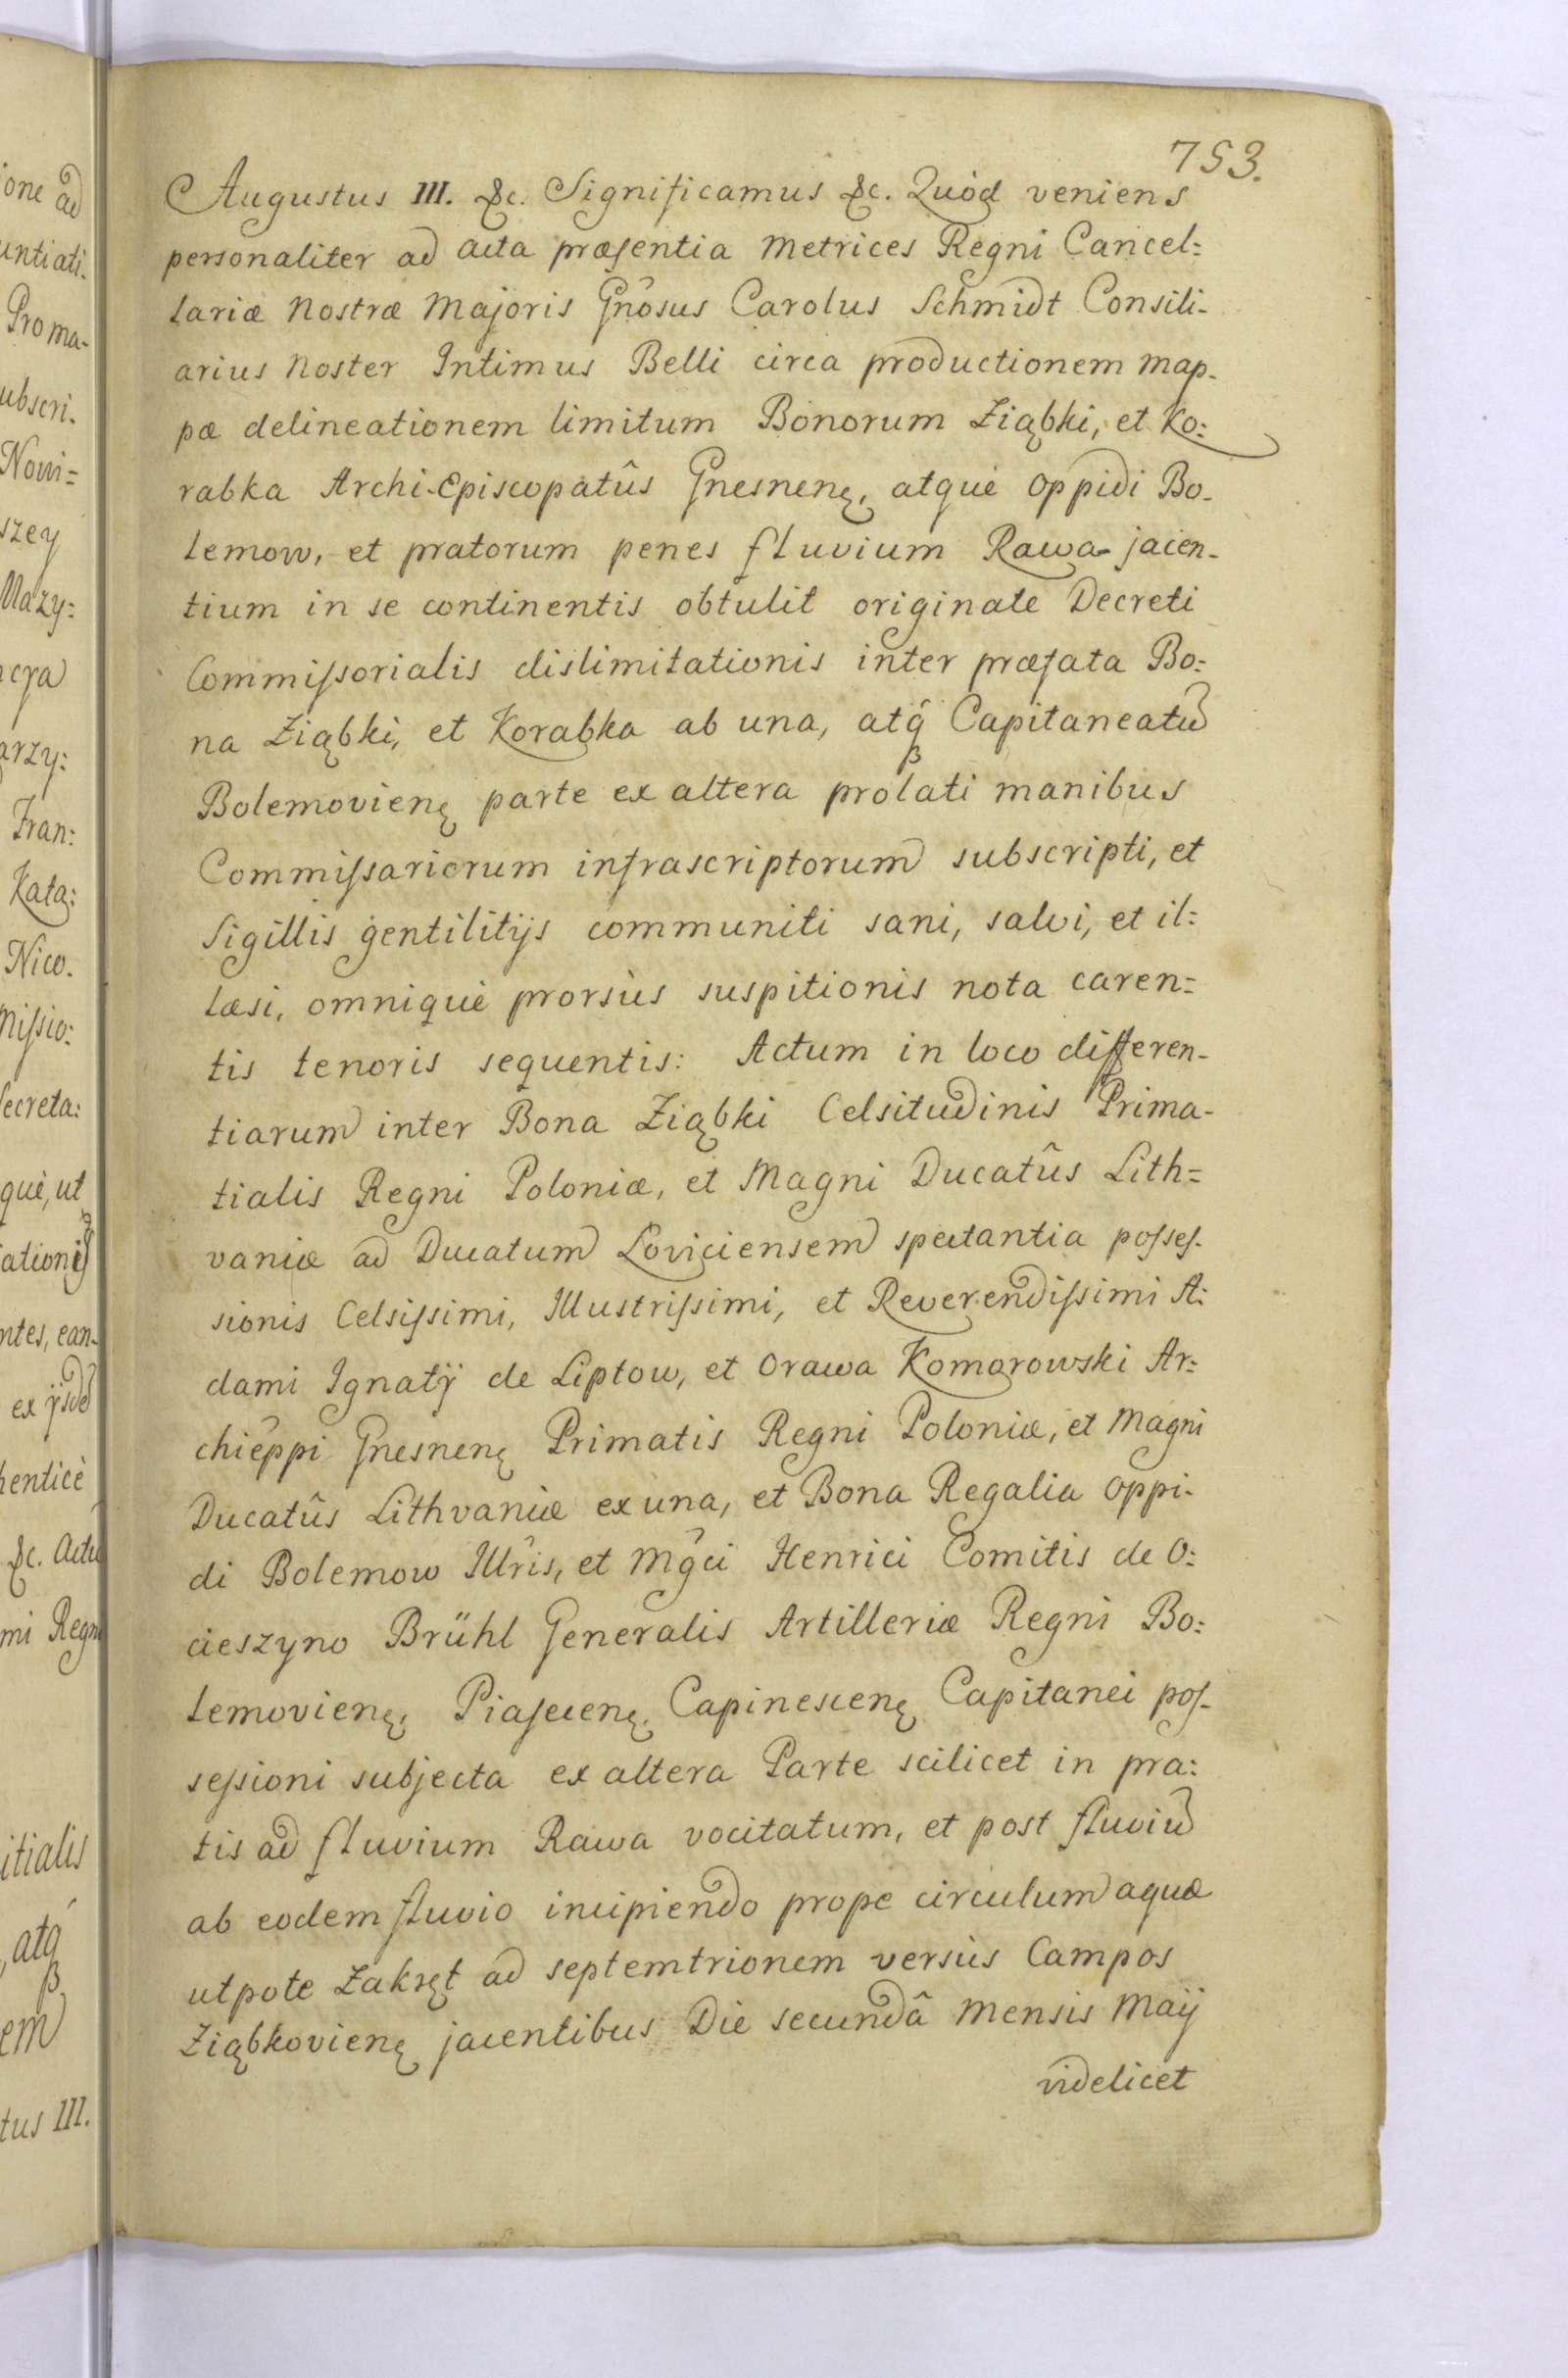 753.
Augustus III. &c. Significamus &c. Quòd veniens
personaliter ad acta præsentia Metrices Regni Cancel=
lariæ Nostræ Majoris Gnôsus Carolus Schmidt Consili-
arius Noster Intimus Belli circa productionem map-
pæ delineationem limitum Bonorum Ziąbki, et Ko:
rabka Archi-Episcopatûs Gnesnenę, atquè oppidi Bo-
lemow, et pratorum penes fluvium Rawa jacen-
tium in se continentis obtulit originale Decreti
Commissorialis dislimitationis inter præfata Bo:
na Ziąbki, et Korabka ab una, atq̂ Capitaneatu͠
Bolemovienę parte ex altera prolati manibus
Commissariorum infrascriptorum subscripti, et
Sigillis gentilitijs communiti sani, salvi, et il=
læsi, omniquè prorsùs suspitionis nota caren=
tis tenoris sequentis: Actum in loco differen-
tiarum inter Bona Ziąbki Celsitudinis Prima-
tialis Regni Poloniæ, et Magni Ducatûs Lith=
vaniæ ad Ducatum Loviciensem spectantia posses-
sionis Celsissimi, Illustrissimi, et Reverendissimi A:
dami Ignatÿ de Liptow, et Orawa Komorowski Ar=
chiêppi Gnesnenę Primatis Regni Poloniæ, et Magni
Ducatûs Lithvaniæ ex una, et Bona Regalia oppi-
di Bolemow Illr̂is, et Mĝci Henrici Comitis de O:
cieszyno Brühl Generalis Artilleriæ Regni Bo:
lemovienę, Piasecenę, Capinescenę Capitanei pos-
sessioni subjecta ex altera Parte scilicet in pra:
tis ad fluvium Rawa vocitatum, et post fluviu͠
ab eodem fluvio incipiendo prope circulum aquæ
utpote Zakręt ad septemtrionem versùs Campos
Ziąbkovienę jacentibus Die secundâ Mensis Maÿ
videlicet